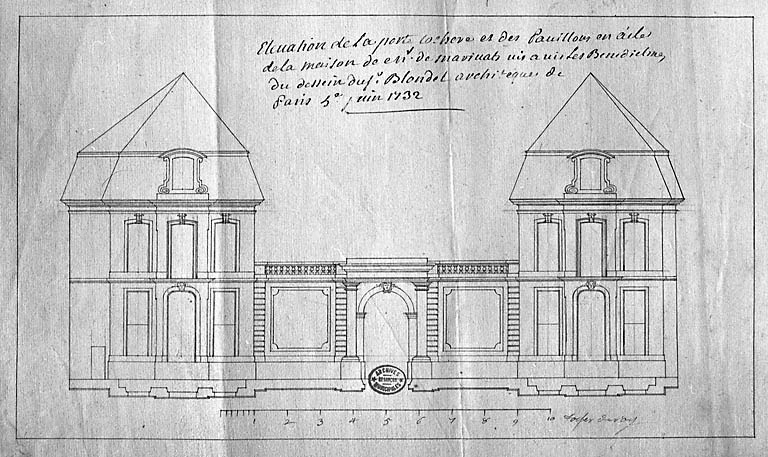 Elevation de la porte cochere et des Pavillons en aile
de la maison de Mr. de marivats vis a vis les Benedictins,
du dessein du Sr. Blondel architeque de
Paris 5e juin 1732
ARCHIVES
MUNICIPALES
1 2 3 4 5 6 7 8 9 10